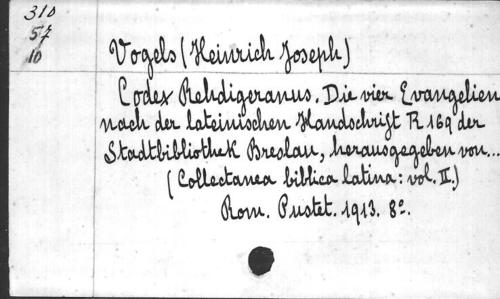 310
57
10
Vogels (Heinrich Joseph)
Codex Rehdigeranus. Die vier Evangelien
nach der lateinischen Handschrift R 169 der
Stadtbibliothek Breslau, herausgegeben von...
(Collectanea biblica latina: vol. II.)
Rom. Pustet. 1913. 8º.